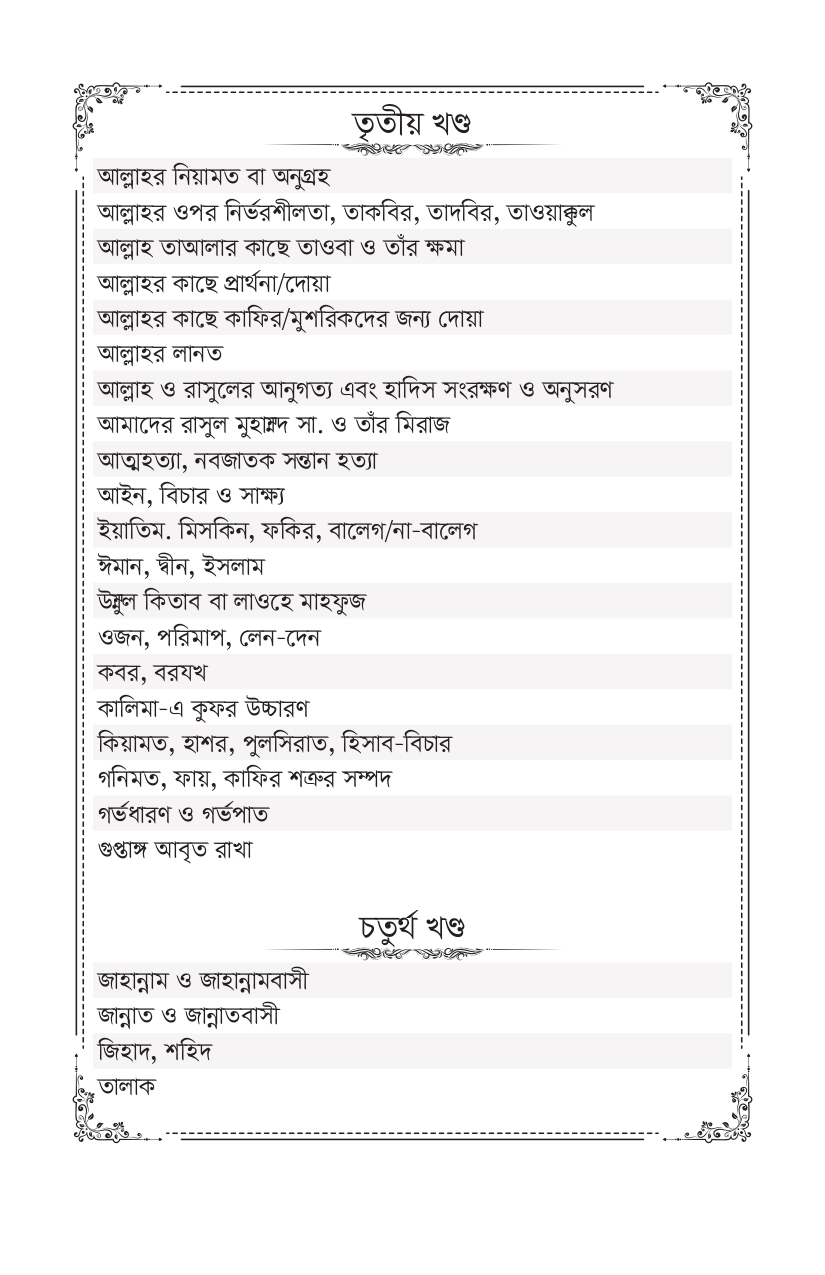 তৃতীয় খণ্ড
আল্লাহর নিয়ামত বা অনুগ্রহ
আল্লাহর ওপর নির্ভরশীলতা, তাকবির, তাদবির, তাওয়াক্কুল
আল্লাহ তাআলার কাছে তাওবা ও তাঁর ক্ষমা
আল্লাহর কাছে প্রার্থনা/দোয়া
আল্লাহর কাছে কাফির/মুশরিকদের জন্য দোয়া
আল্লাহর লানত
আল্লাহ ও রাসুলের আনুগত্য এবং হাদিস সংরক্ষণ ও অনুসরণ
আমাদের রাসুল মুহাম্মদ সা. ও তাঁর মিরাজ
আত্মহত্যা, নবজাতক সন্তান হত্যা
আইন, বিচার ও সাক্ষ্য
ইয়াতিম. মিসকিন, ফকির, বালেগ/না-বালেগ
ঈমান, দ্বীন, ইসলাম
উম্মুল কিতাব বা লাওহে মাহফুজ
ওজন, পরিমাপ, লেন-দেন
কবর, বরযখ
কালিমা-এ কুফর উচ্চারণ
কিয়ামত, হাশর, পুলসিরাত, হিসাব-বিচার
গনিমত, ফায়, কাফির শত্রুর সম্পদ
গর্ভধারণ ও গর্ভপাত
গুপ্তাঙ্গ আবৃত রাখা
চতুর্থ খণ্ড
জাহান্নাম ও জাহান্নামবাসী
জান্নাত ও জান্নাতবাসী
জিহাদ, শহিদ
তালাক